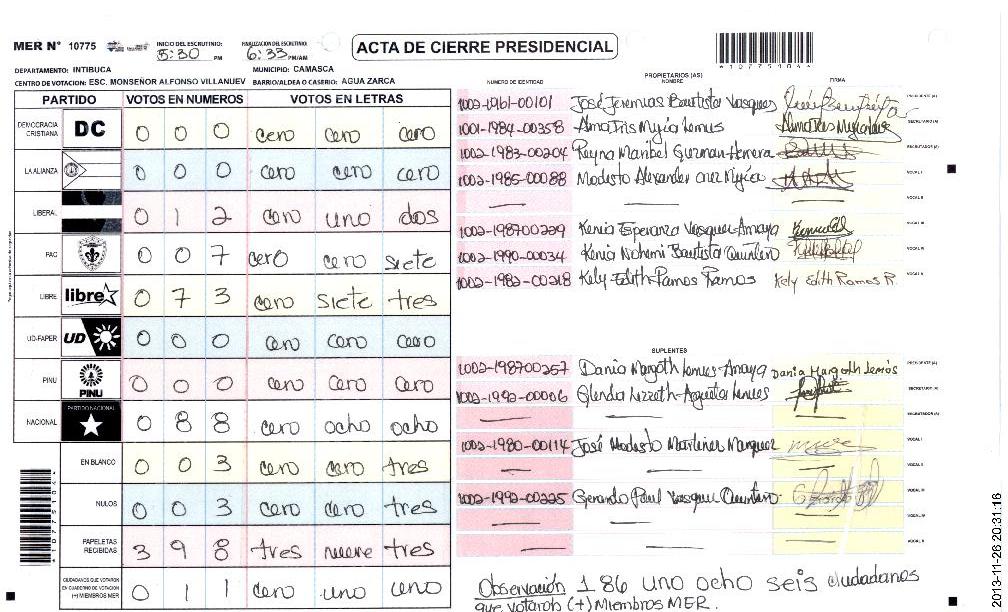 MER N° 10775 INICIO DEL ESCRUTINIO: 5:30 PM FINALIZACION DEL ESCRUTINIO: 6:33 PM/AM ACTA DE CIERRE PRESIDENCIAL
DEPARTAMENTO: INTIBUCA MUNICIPIO: CAMASCA
CENTRO DE VOTACION: ESC. MONSEÑOR ALFONSO VILLANUEV BARRIO/ALDEA O CASERIO: AGUA ZARCA
PARTIDO VOTOS EN NUMEROS VOTOS EN LETRAS
DEMOCRACIA CRISTIANA DC 0 0 0 cero cero cero
LA ALIANZA 0 0 0 cero cero cero
LIBERAL 0 1 2 cero uno dos
PAC 0 0 7 cero cero siete
LIBRE libre 0 7 3 cero siete tres
UD-FAPER UD 0 0 0 cero cero cero
PINU PINU 0 0 0 cero cero cero
NACIONAL PARTIDO NACIONAL 0 8 8 cero ocho ocho
EN BLANCO 0 0 3 cero cero tres
NULOS 0 0 3 cero cero tres
PAPELETAS RECIBIDAS 3 9 8 tres nueve tres
CIUDADANOS QUE VOTARON EN CUADERNO DE VOTACION (+) MIEMBROS MER 0 1 1 cero uno uno
NUMERO DE IDENTIDAD PROPIETARIOS (AS) NOMBRE FIRMA
1002-1961-00101 José Jeremias Bautista Vasquez PRESIDENTE (A)
1001-1984-00358 Alma Iris Mejia Lemus SECRETARIO (A)
1002-1983-00204 Reyna Maribel Guzman Herrera ESCRUTADOR (A)
1002-1985-00088 Modesto Alexander VOCAL I
VOCAL II
1002-198700229 Kenia Esperanza Vasquez Amaya VOCAL III
1002-1990-00034 Kenia Nohemi Bautista Quintero VOCAL IV
1002-1982-00218 Kely Edith Ramos Ramos Kely Edith Ramos R. VOCAL V
SUPLENTES
1002-198700257 Dania Margoth Lemus Amaya Dania Margoth Lemos PRESIDENTE (A)
1002-1990-00006 Glenda Lizzeth Argueta Lemus SECRETARIO (A)
ESCRUTADOR (A)
1002-1980-00114 José Modesto Martinez Marquez VOCAL I
VOCAL II
1002-1992-00225 Gerardo Paul Vasquez Quintero VOCAL III
VOCAL IV
VOCAL V
Observación 186 uno ocho seis ciudadanos
que votarob (+) Miembros MER.
2013-11-26 20:31:16